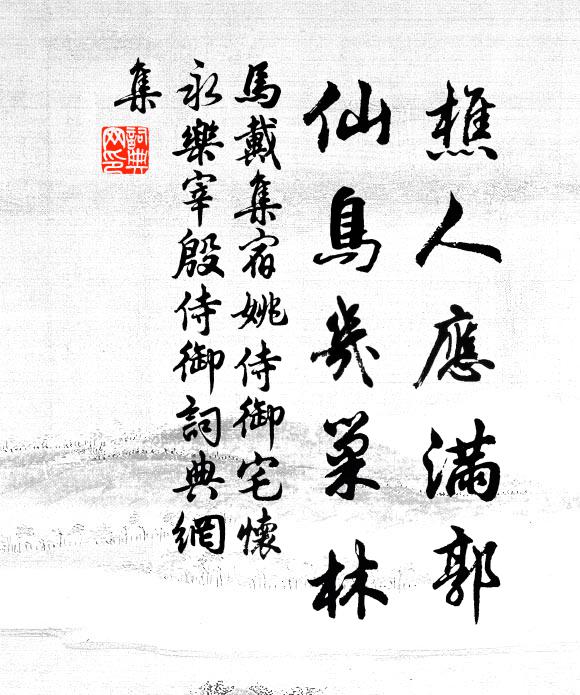 樵人應滿郭
仙鳥幾巢林
馬戴集宿姚侍御宅懷
永樂宰殷侍御詞典網
集
詞典
网印